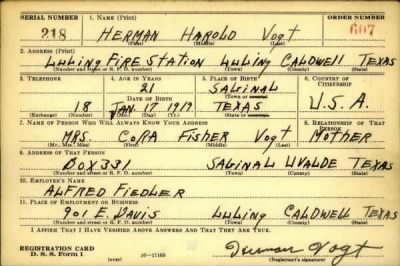 SERIAL NUMBER 1. NAME (Print) ORDER NUMBER
218 HERMAN HAROLD Vogt 607
(First) (Middle) (Last)
2. ADDRESS (Print)
LULING FIRE STATION LULING CALDWELL TEXAS
(Number and street or R. F. D. number) (Town) (County) (State)
3. TELEPHONE 4. AGE IN YEARS 5. PLACE OF BIRTH 6. COUNTRY OF CITIZENSHIP
21 SABINAL
DATE OF BIRTH (Town or county)
18 JAN. 17 1919 TEXAS U.S.A.
(Exchange) (Number) (Mo.) (Day) (Yr.) (State or country)
7. NAME OF PERSON WHO WILL ALWAYS KNOW YOUR ADDRESS 8. RELATIONSHIP OF THAT PERSON
MRS. CORA FISHER Vogt MOTHER
(Mr., Mrs., Miss) (First) (Middle) (Last)
9. ADDRESS OF THAT PERSON
BOX 331 SABINAL UVALDE TEXAS
(Number and street or R. F. D. number) (Town) (County) (State)
10. EMPLOYER'S NAME
ALFRED FIEDLER
11. PLACE OF EMPLOYMENT OR BUSINESS
901 E. DAVIS LULING CALDWELL TEXAS
(Number and street or R. F. D. number) (Town) (County) (State)
I AFFIRM THAT I HAVE VERIFIED ABOVE ANSWERS AND THAT THEY ARE TRUE.
REGISTRATION CARD
D. S. S. Form 1 (over) Herman Vogt
(Registrant's signature)